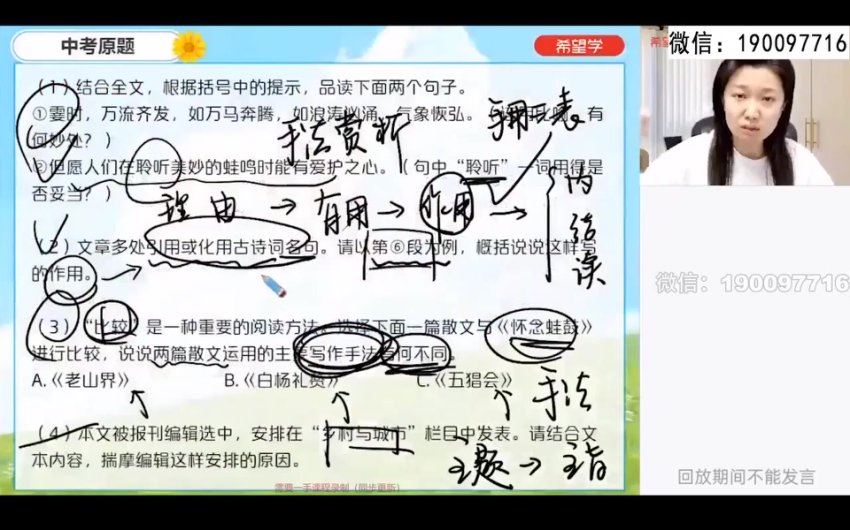 中考原题
希望学
微信：190097716
（1）结合全文，根据括号中的提示，品读下面两个句子。
①霎时，万流齐发，如万马奔腾，如浪涛汹涌，气象恢弘。 有
何妙处？）
手法赏析
②但愿人们在聆听美妙的蛙鸣时能有爱护之心。（句中“聆听”一词用得是
否妥当？）
理由 → 有用 → 作用 →
内
结
读
（2）文章多处引用或化用古诗词名句。请以第⑥段为例，概括说说这样写
的作用。
微信：190097716
（3）“比较”是一种重要的阅读方法。选择下面一篇散文与《怀念蛙鼓》
进行比较，说说两篇散文运用的主要写作手法有何不同。
A.《老山界》 B.《白杨礼赞》 C.《五猖会》
手法
（4）本文被报刊编辑选中，安排在“乡村与城市”栏目中发表。请结合文
本内容，揣摩编辑这样安排的原因。
主题 → 主旨
回放期间不能发言
需要一手课程录制（同步更新）